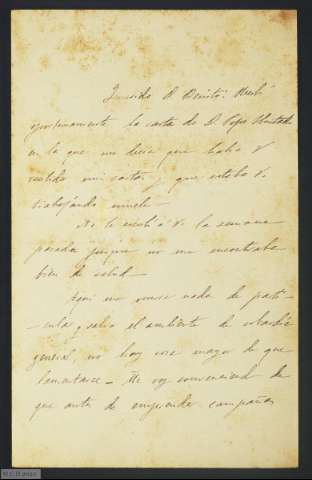 Querido D. Benito: Recibí
oportunamente la carta de D. Pepe Hurtado
en la que me decía que había V.
recibido mi carta y que estaba V.
trabajando mucho.
No le escribí á V. la semana
pasada porque no me encontraba
bien de salud.
Aquí no ocurre nada de parti-
-cular y salvo el ambiente de
general, no hay cosa mayor de que
lamentarse. Me voy convenciendo de
que antes de emprender campañas